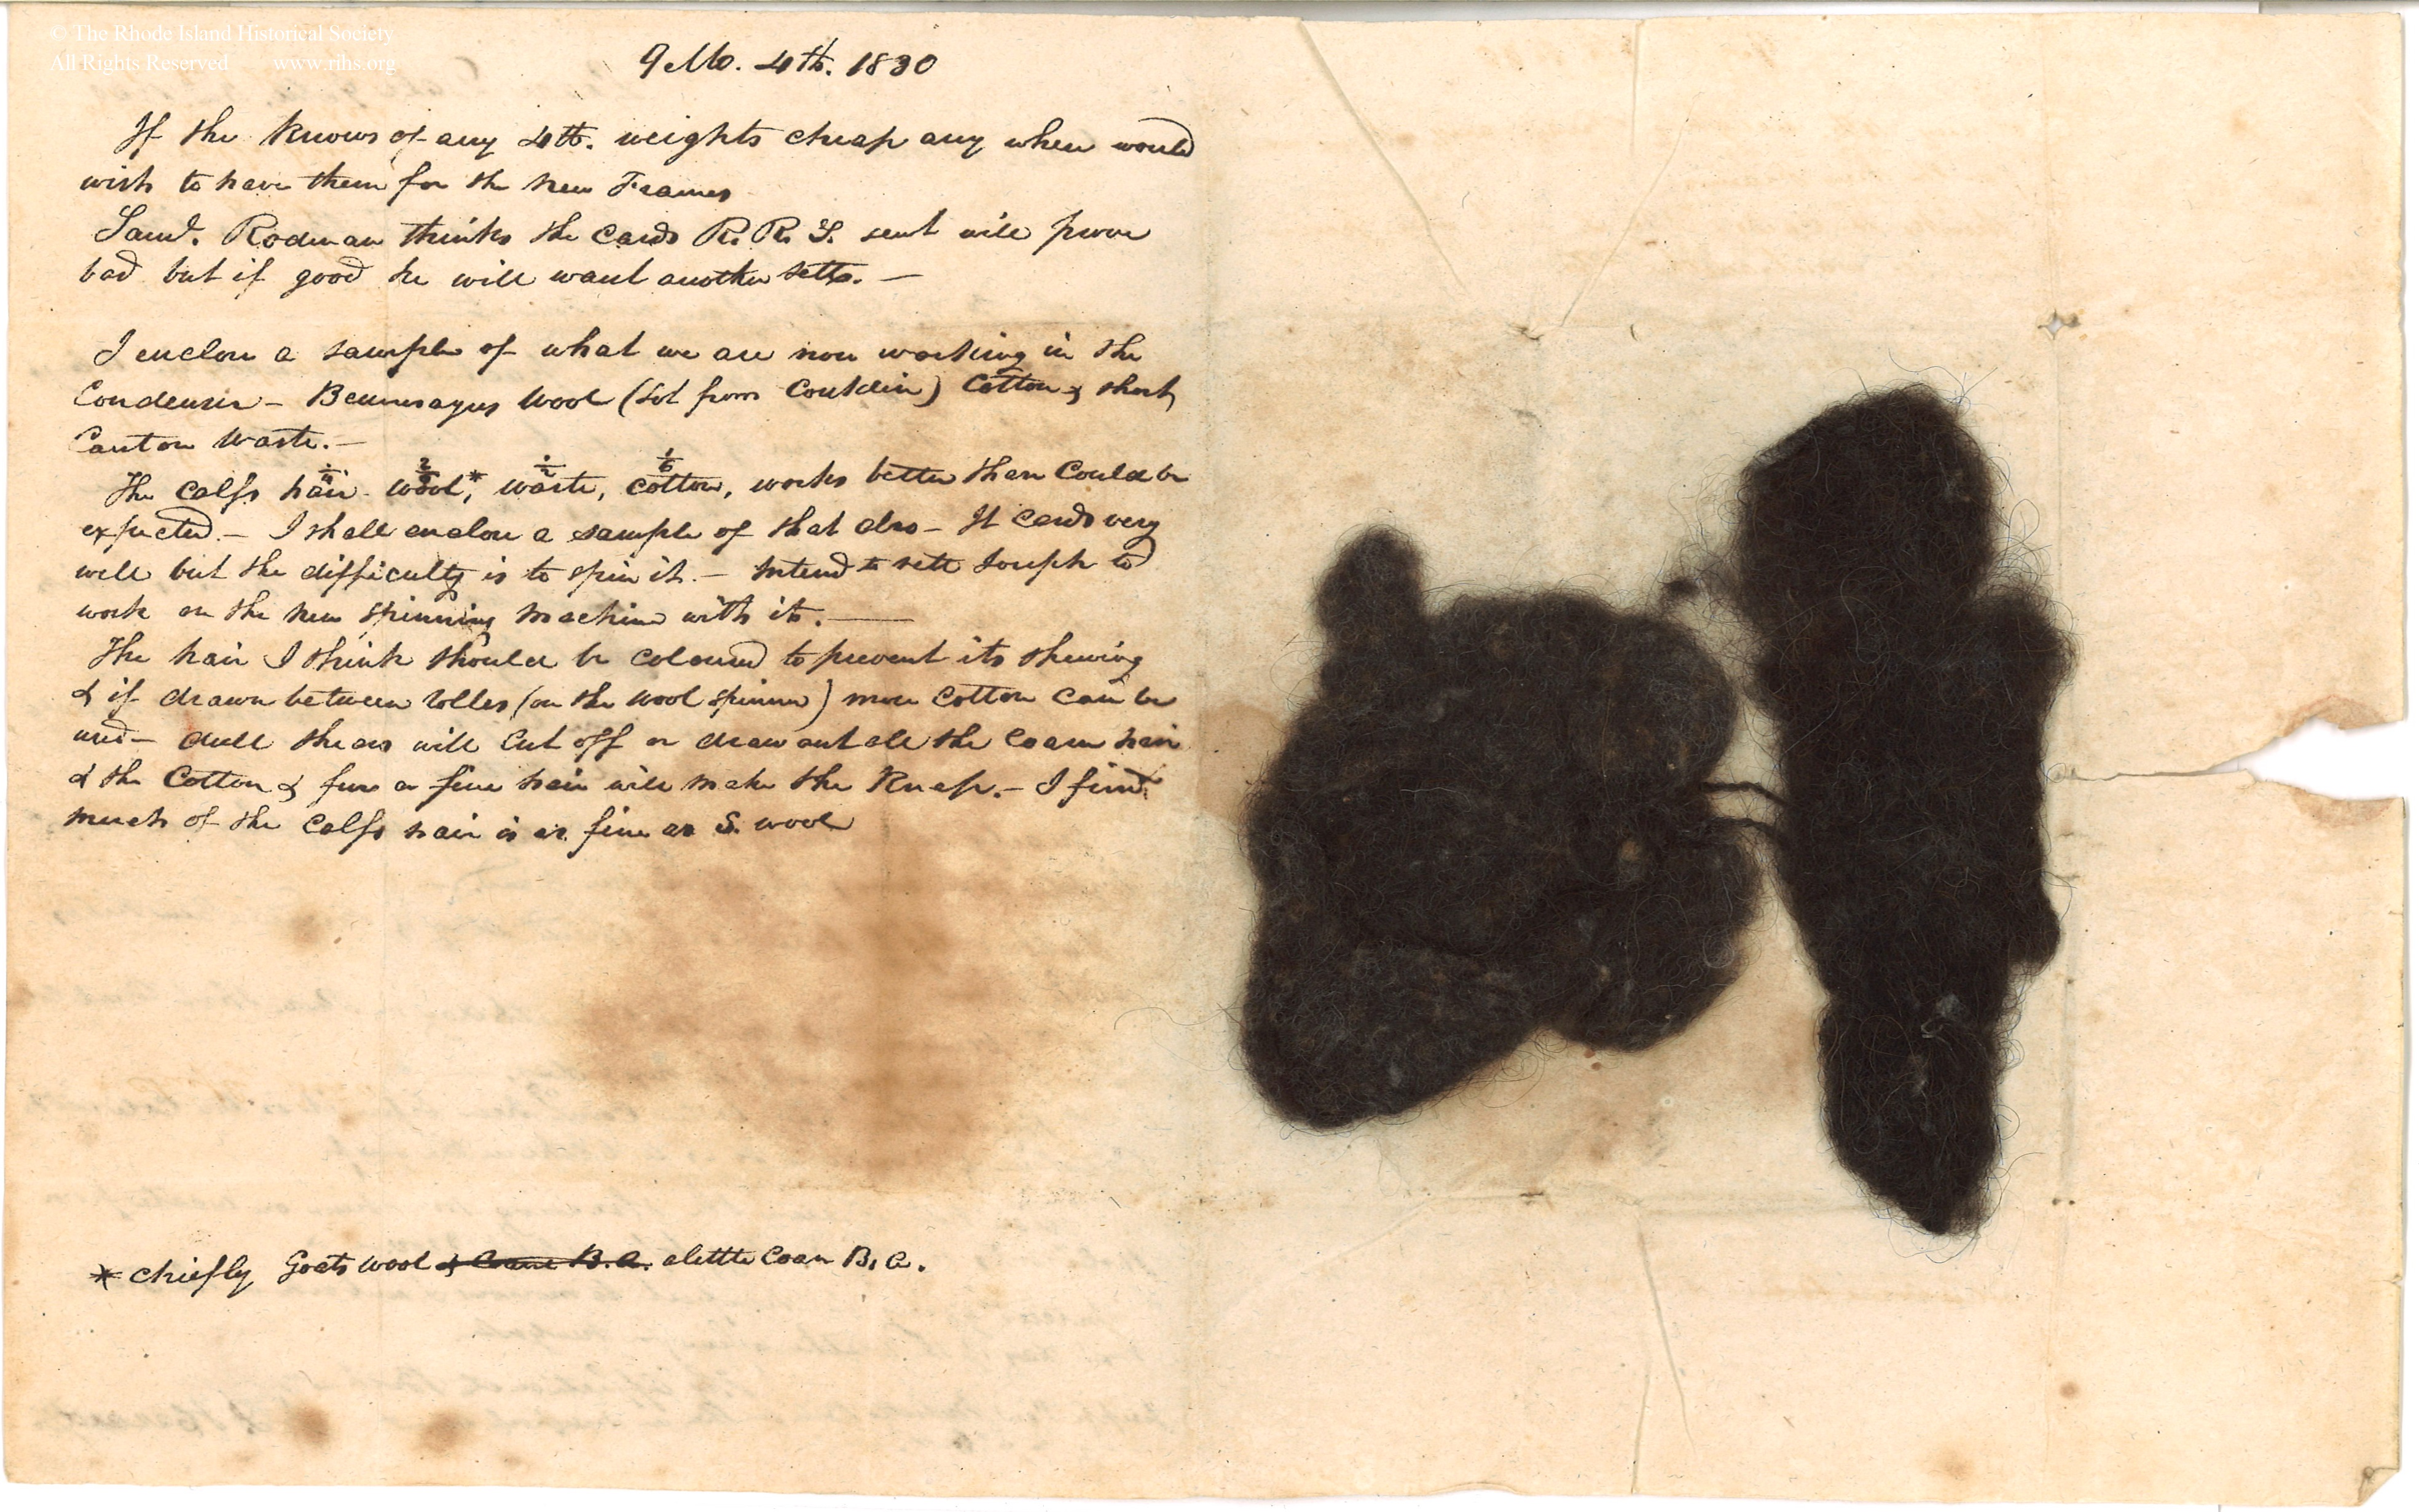 © The Rhode Island Historical Society
All Rights Reserved www.rihs.org
9 Mo. 4th. 1830
If thee knows of any 4 lb. weights cheap any where would
wish to have them for the new Frames
Saml. Rodman thinks the cards R. R. S. sent will prove
bad but if good he will want another setts. —
I enclose a sample of what we are now working in the
Condenser – Buenosayres Wool (Lot from ) Cotton & short
Canton Waste. —
The Calfs hair wool,* waste, cotton, works better than Could be
expected. – I shall enclose a sample of that also – It cards very
well but the difficulty is to spin it. – Intend to sett Joseph to
work on the new spinning machine with it. ——
The hair I think should be coloured to prevent its shewing
& if drawn between rolles (on the wool spinner) more cotton can be
used – dull shears will Cut off or draw out all the Coarse hair
& the Cotton & furr or fine hair will make the Knap. – I find
much of the Calfs hair is as fine as S. wool
* chiefly Goats wool & Coarse B. A. a little Coarse B. A.